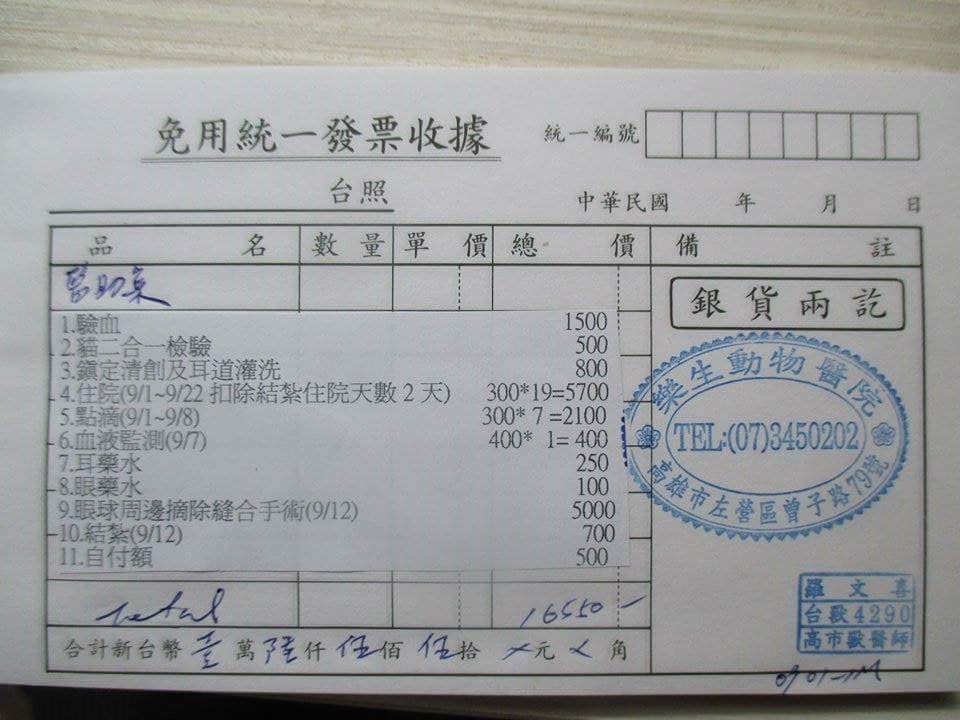 免用統一發票收據
統一編號
台照
中華民國 年 月 日
品 名 數 量 單 價 總 價 備 註
銀貨兩訖
1.驗血 1500
2.貓二合一檢驗 500
3.鎮定清創及耳道灌洗 800
4.住院(9/1~9/22 扣除結紮住院天數 2 天) 300*19=5700
5.點滴(9/1~9/8) 300* 7 =2100
6.血液監測(9/7) 400* 1= 400
7.耳藥水 250
8.眼藥水 100
9.眼球周邊摘除縫合手術(9/12) 5000
10.結紮(9/12) 700
11.自付額 500
樂生動物醫院
TEL:(07)3450202
高雄市左營區曾子路79號
Total 16550-
合計新台幣 壹 萬 陸 仟 伍 佰 伍 拾 元 角
羅文喜
台獸4290
高市獸醫師